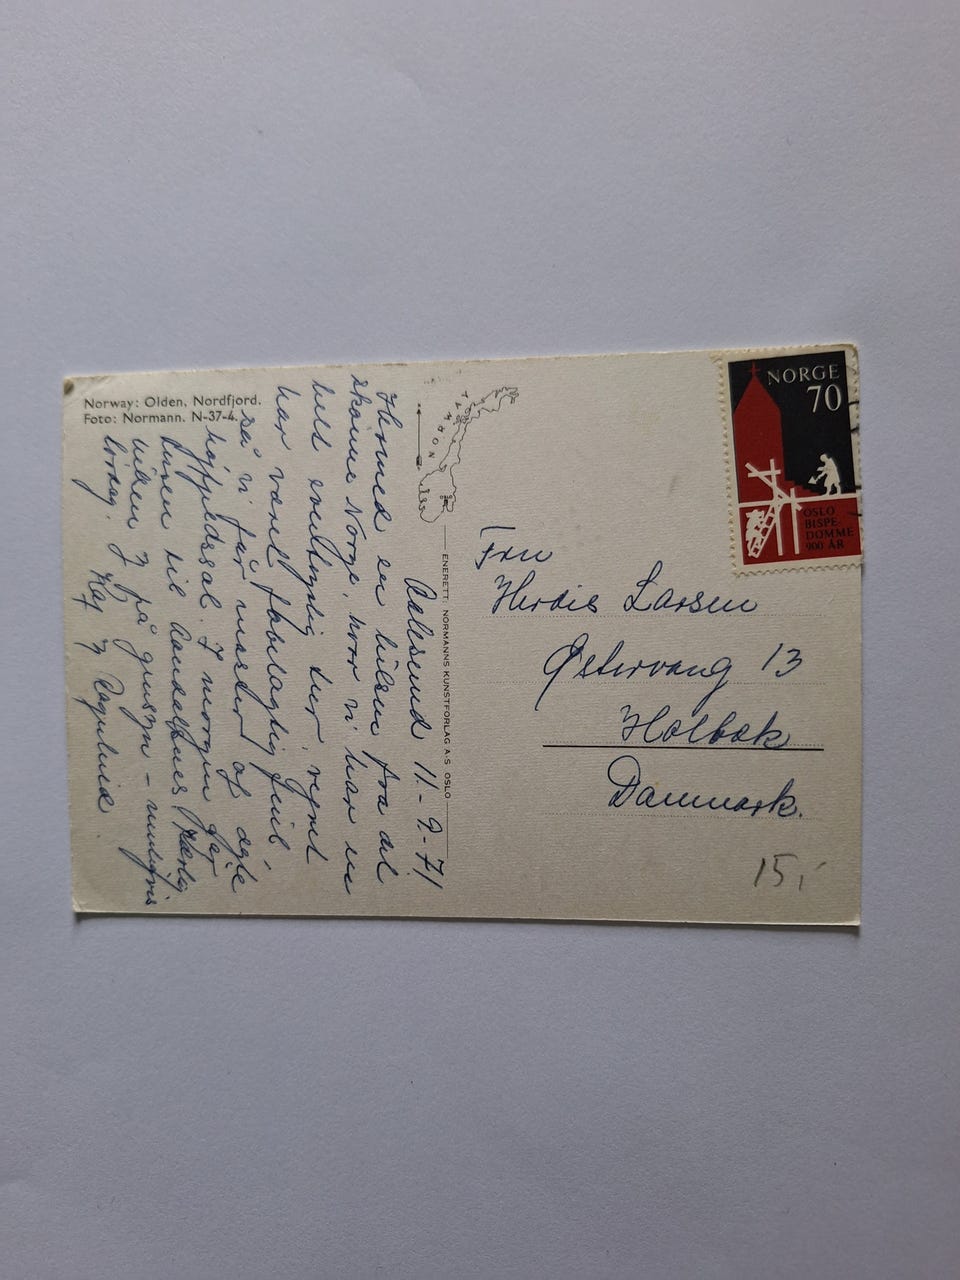 Norway: Olden, Nordfjord.
Foto: Normann. N-37-4.
Aalesund 11.-9.-71
Hermed en hilsen fra det
skønne Norge, hvor vi har en
helt tur, vejret
har været fabelagtig fint -
så vi får masser af ægte
højfjeldssol. I morgen går
turen til Aandalsnes Kærlig
hilsen & på gensyn - muligvis
lørdag. Kaj & Ragnhild
NORGATA
ENERETT: NORMANNS KUNSTFORLAG A·S OSLO
NORGE
70
OSLO
BISPE
DØMME
900 ÅR
Fru
Herdis Larsen
Østervang 13
Holbæk
Danmark.
15,-